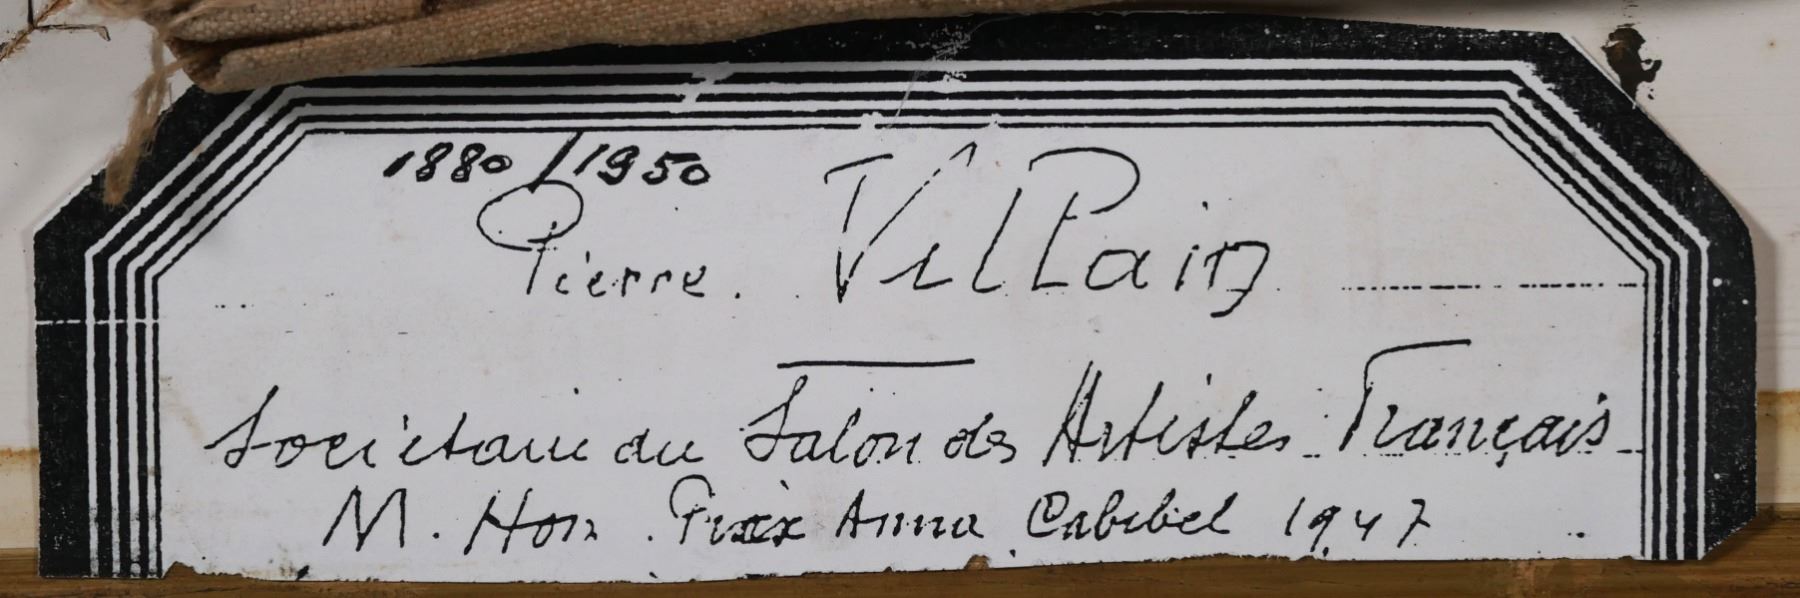 1880/1950
Pierre. Villain
Sociétaire du Salon des Artistes Français
M. Hon. Prix Anna Cabibel 1947